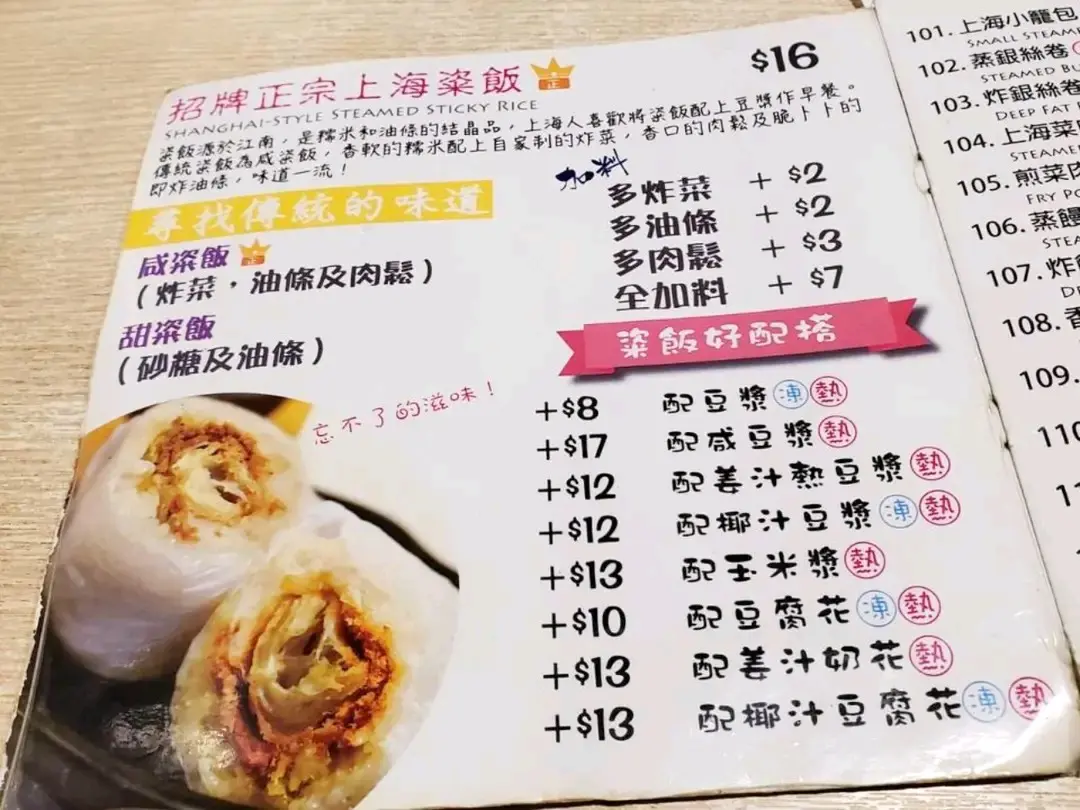 招牌正宗上海粢飯 正 $16
SHANGHAI-STYLE STEAMED STICKY RICE
粢飯源於江南，是糯米和油條的結晶品，上海人喜歡將粢飯配上豆漿作早餐。
傳統粢飯為咸粢飯，香軟的糯米配上自家制的炸菜，香口的肉鬆及脆卜卜的
即炸油條，味道一流！
尋找傳統的味道
咸粢飯 正
(炸菜，油條及肉鬆)
甜粢飯
(砂糖及油條)
忘不了的滋味！
加料
多炸菜 + $2
多油條 + $2
多肉鬆 + $3
全加料 + $7
粢飯好配搭
+$8 配豆漿 凍 熱
+$17 配咸豆漿 熱
+$12 配姜汁熱豆漿 熱
+$12 配椰汁豆漿 凍 熱
+$13 配玉米漿 熱
+$10 配豆腐花 凍 熱
+$13 配姜汁奶花 熱
+$13 配椰汁豆腐花 凍 熱
101. 上海小籠包
SMALL STEAME
102. 蒸銀絲卷
STEAMED BU
103. 炸銀絲卷
DEEP FAT
104. 上海菜
STEAME
105. 煎菜肉
FRY PO
106. 蒸饅
STEA
107. 炸
DE
108. 香
109.
110
11